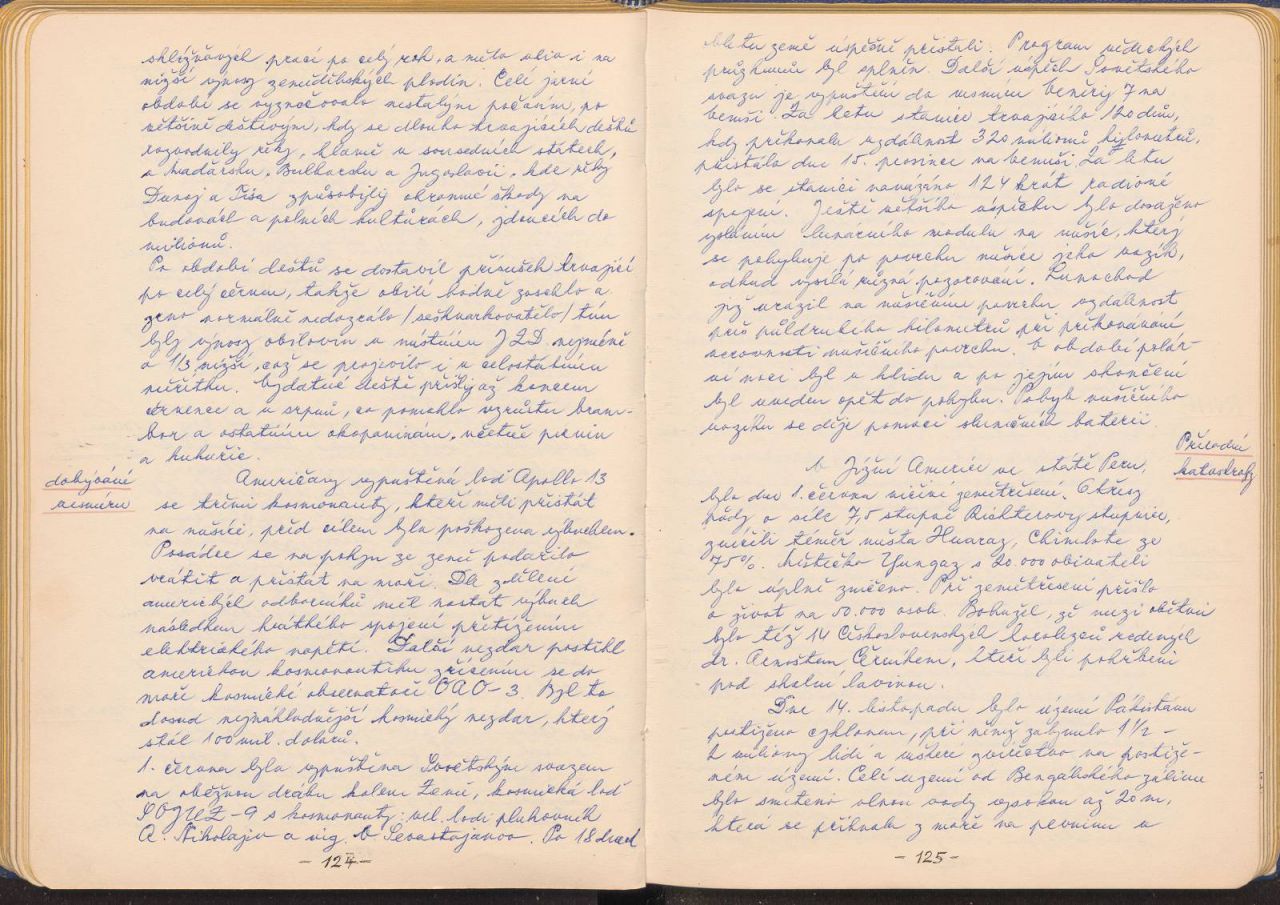 sklizňových prací po celý rok, a mělo vliv i na
nižší výnosy zemědělských plodin. Celé jarní
období se vyznačovalo nestálým počasím, po
většině deštivým, kdy se dlouho trvajících dešťů
rozvodnily řeky, hlavně v sousedních státech,
v Maďarsku, Bulharsku a Jugoslavii, kde řeky
Dunaj a Tisa způsobily ohromné škody na
budovách a polních kulturách, jdoucích do
milionů.
Po období dešťů se dostavil přísušek trvající
po celý červen, takže obilí hodně zaschlo a
zrno normálně nedozrálo /seškvarkovatělo/ tím
byly výnosy obilovin v místním JZD. nejméně
o 1/3 nižší, což se projevilo i v celostátním
měřítku. Vydatné deště přišly až koncem
července a v srpnu, co pomohlo vzrůstu bram-
bor a ostatním okopaninám, včetně pícnin
a kukuřic.
dobývání
vesmíru
Američany vypuštěná loď Apollo 13
se třemi kosmonauty, kteří měli přistát
na měsíci, před cílem byla poškozena výbuchem.
Posádce se na pokyn ze země podařilo
vrátit a přistát na moři. Dle zdělení
amerických odborníků měl nastat výbuch
následkem krátkého spojení přetížením
elektrického napětí. Další nezdar postihl
americkou kosmonautiku zřícením se do
moře kosmické observatoře OAO-3. Byl to
dosud nejnákladnější kosmický nezdar, který
stál 100 mil. dolarů.
1. června byla vypuštěna Sovětským svazem
na oběžnou dráhu kolem Země, kosmická loď
SOJUZ-9 s kosmonauty: vel. lodi plukovník
A. Nikolajev a ing. V. Sevasťjanov. Po 18 dnech
- 124 -
obletu země úspěšně přistáli. Program vědeckých
průzkumů byl splněn. Další úspěch Sovětského
svazu je vypuštění do vesmíru Veněry 7 na
Venuši. Za letu stanice trvajícího 120 dnů,
kdy překonala vzdálenost 320 milionů kilometrů,
přistála dne 15. prosince na Venuši. Za letu
bylo se stanicí navázáno 124 krát radiové
spojení. Ještě většího úspěchu bylo dosaženo
vysláním lunárního modulu na měsíc, který
se pohybuje po povrchu měsíce jeho vozík,
odkud vysílá různá pozorování. Lunochod
již urazil na měsíčním povrchu vzdálenost
přes půldruhého kilometrů při překonávání
nerovností měsíčního povrchu. V období polár-
ní noci byl v klidu a po jejím skončení
byl uveden opět do pohybu. Pohyb měsíčního
vozíku se děje pomocí slunečních baterií.
Přírodní
katastrofy
V Jižní Americe ve státě Peru,
bylo dne 1. června ničivé zemětřesení. Otřesy
půdy o síle 7,5 stupně Richterovy stupnice,
zničili téměř města Huaraz, Chimbote ze
75%. Městečko Yungaz s 20 000 obyvateli
bylo úplně zničeno. Při zemětřesení přišlo
o život na 50.000 osob. Bohužel, že mezi oběťmi
bylo též 14 Československých horolezců vedených
dr. Arnoštem Černíkem, kteří byli pohřbeni
pod skalní lavinou.
Dne 14. listopadu bylo území Pákistánu
postiženo cyklonem, při němž zahynulo 1½ -
2 miliony lidí a veškeré zvířectvo na postiže-
ném území. Celé území od Bengálského zálivu
bylo smeteno vlnou vody vysokou až 20 m,
která se přihnala z moře na pevninu v
- 125 -